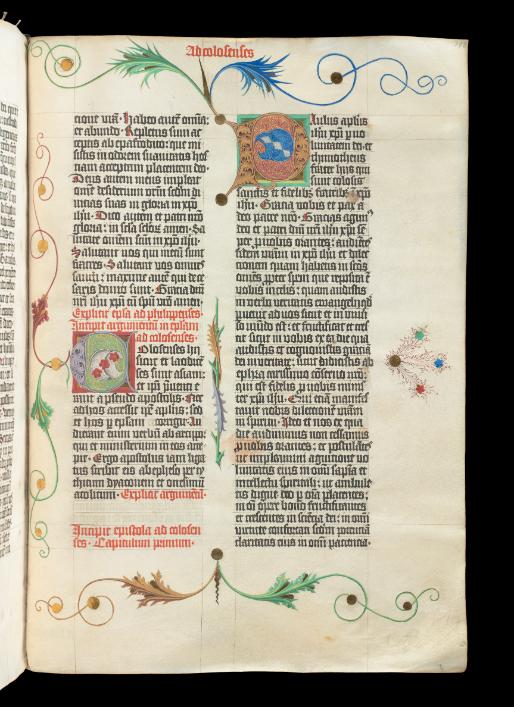 Ad colosenses
tique viā. Habeo autē omīa:
et abundo. Repletus sum ac
ceptis ab epafrodito: que mi
sistis in odorem suauitatis hos
tiam acceptam placentem deo.
Deus autem meus impleat
omē desiderium vr̄m scdm di
uicias suas in gloria in xp̄o
ih̄u. Deo autem et patri nr̄o
gloria: in sc̄la sc̄lor̄ amen. Sa
lutate omnem sc̄m in xp̄o ih̄u.
Salutant vos qui mecū sunt
fratres. Salutant vos omnes
sancti: maxime autē qui de ce
saris domo sunt. Gratia dn̄i
nr̄i ih̄u xp̄i cū sp̄u vr̄o amen.
Explicit ep̄la ad philippenses.
Incipit argumentū in ep̄lam
ad colosenses.
Colosenses hii
sicut et laodicē
ses sunt asiani:
et ip̄i p̄uenti e
rant a pseudo apostolis. Nec
ad hos accessit ip̄e ap̄lus: sed
et hos p̄ ep̄lam corrigit. Au
dierant enim verbū ab archip
po: qui et ministeriū in eos acce
pit. Ergo apostolus iam liga
tus scribit eis ab epheso per ty
thicum dyaconem et onesimū
acolitum. Explicit argumētū.
Incipit epistola ad colosen
ses. Capitulum primum.
Paulus ap̄lus
ih̄u xp̄i p̄ uo
luntatem dei: et
thymotheus
frater hijs qui
sunt colosis
sanctis et fidelib; fratrib; ī xp̄o
ih̄u. Gratia vobis et pax a
deo patre nr̄o. Gracias agim9
deo et patri dn̄i nr̄i ih̄u xp̄i se
per p̄ uobis orantes: audiētes
fidem vr̄am in xp̄o ih̄u et dilec
tionem quam habetis in sc̄os
om̄es p̄pter spem que reposita ē
vobis in celis: quam audistis
in verbo veritatis ewangelij qd̄
puenit ad uos sicut et in uniu̾
so mūdo est: et fructificat et cres
cit sicut in vobis ex ea die qua
audistis et cognouistis gratiā
dei in veritate: sicut didicistis ab
ephra carissimo cōseruo nr̄o:
qui est fidelis p̄ uobis minis
ter xp̄i ih̄u. Qui etiā manifes
tauit nobis dilectionē vr̄am
in spiritu. Ideo et nos ex qua
die audiuimus non cessamus
p̄ uobis orantes: et postulātes
ut impleamini agnitione uo
luntatis eius in om̄i sapīa et
intellectu spirituali: ut ambule
tis digne deo p̄ om̄ia placentes:
in om̄i opere bono fructificantes
et crescentes in scīēcia dei: in om̄i
virtute confortati scdm potenciā
claritatis eius in om̄i paciencia